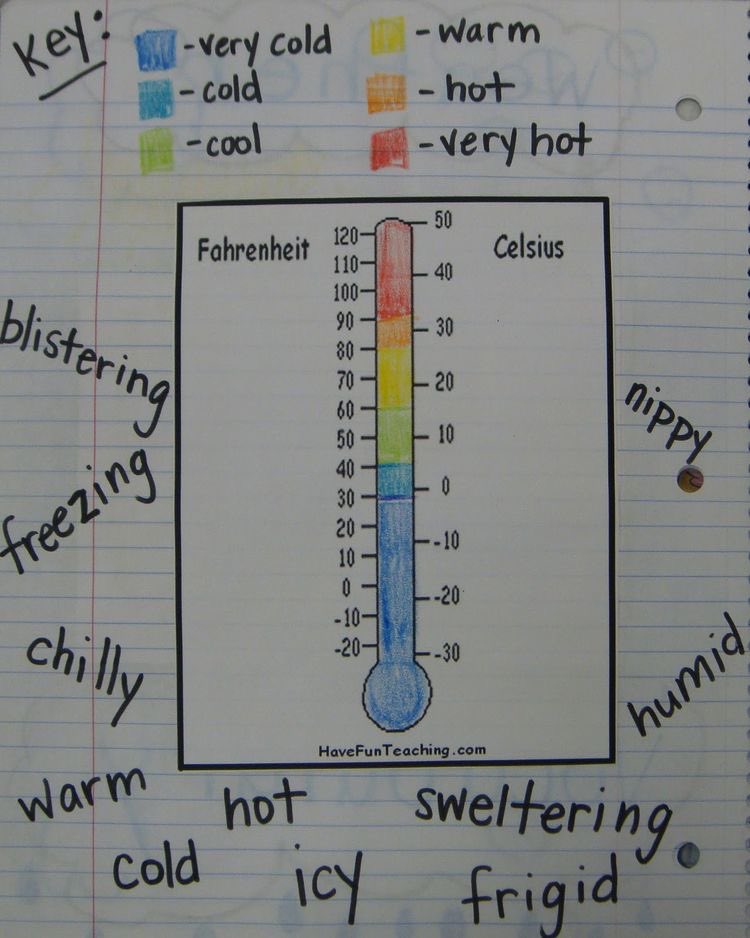 Key:
-very cold
-cold
-cool
-warm
-hot
-very hot
Fahrenheit
Celsius
120
110
100
90
80
70
60
50
40
30
20
10
0
-10
-20
50
40
30
20
10
0
-10
-20
-30
HaveFunTeaching.com
blistering
freezing
chilly
nippy
humid
warm hot sweltering
cold icy frigid